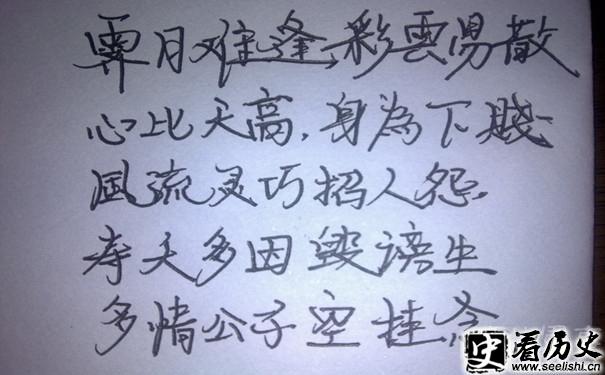 霁月难逢,彩雲易散
心比天高,身為下賤
風流灵巧招人怨,
寿夭多因毁谤生
多情公子空挂念
史 看历史
www.seelishi.cn